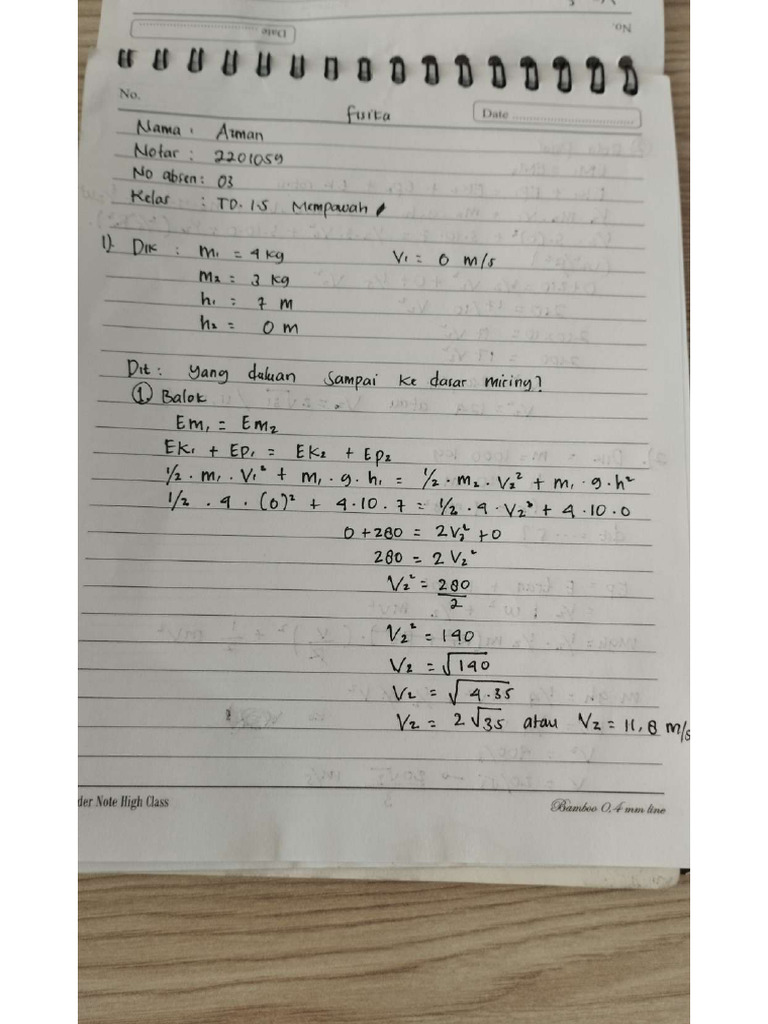 No.
Date
No.
Fisika
Date
Nama : Arman
Notar : 2201059
No absen : 03
Kelas : TD. 1.5 Mempawah
1). Dik : m₁ = 4 kg V₁ = 0 m/s
m₂ = 3 kg
h₁ = 7 m
h₂ = 0 m
Dit : yang duluan sampai ke dasar miring?
① Balok
Em₁ = Em₂
EK₁ + EP₁ = EK₂ + EP₂
1/2 . m₁ . V₁² + m₁ . g . h₁ = 1/2 . m₂ . V₂² + m₁ . g . h²
1/2 . 4 . (0)² + 4 . 10 . 7 = 1/2 . 4 . V₂² + 4 . 10 . 0
0 + 280 = 2V₂² + 0
280 = 2 V₂²
V₂² = 280/2
V₂² = 140
V₂ = √140
V₂ = √4.35
V₂ = 2√35 atau V₂ = 11,8 m/s
der Note High Class
Bamboo 0,4 mm line